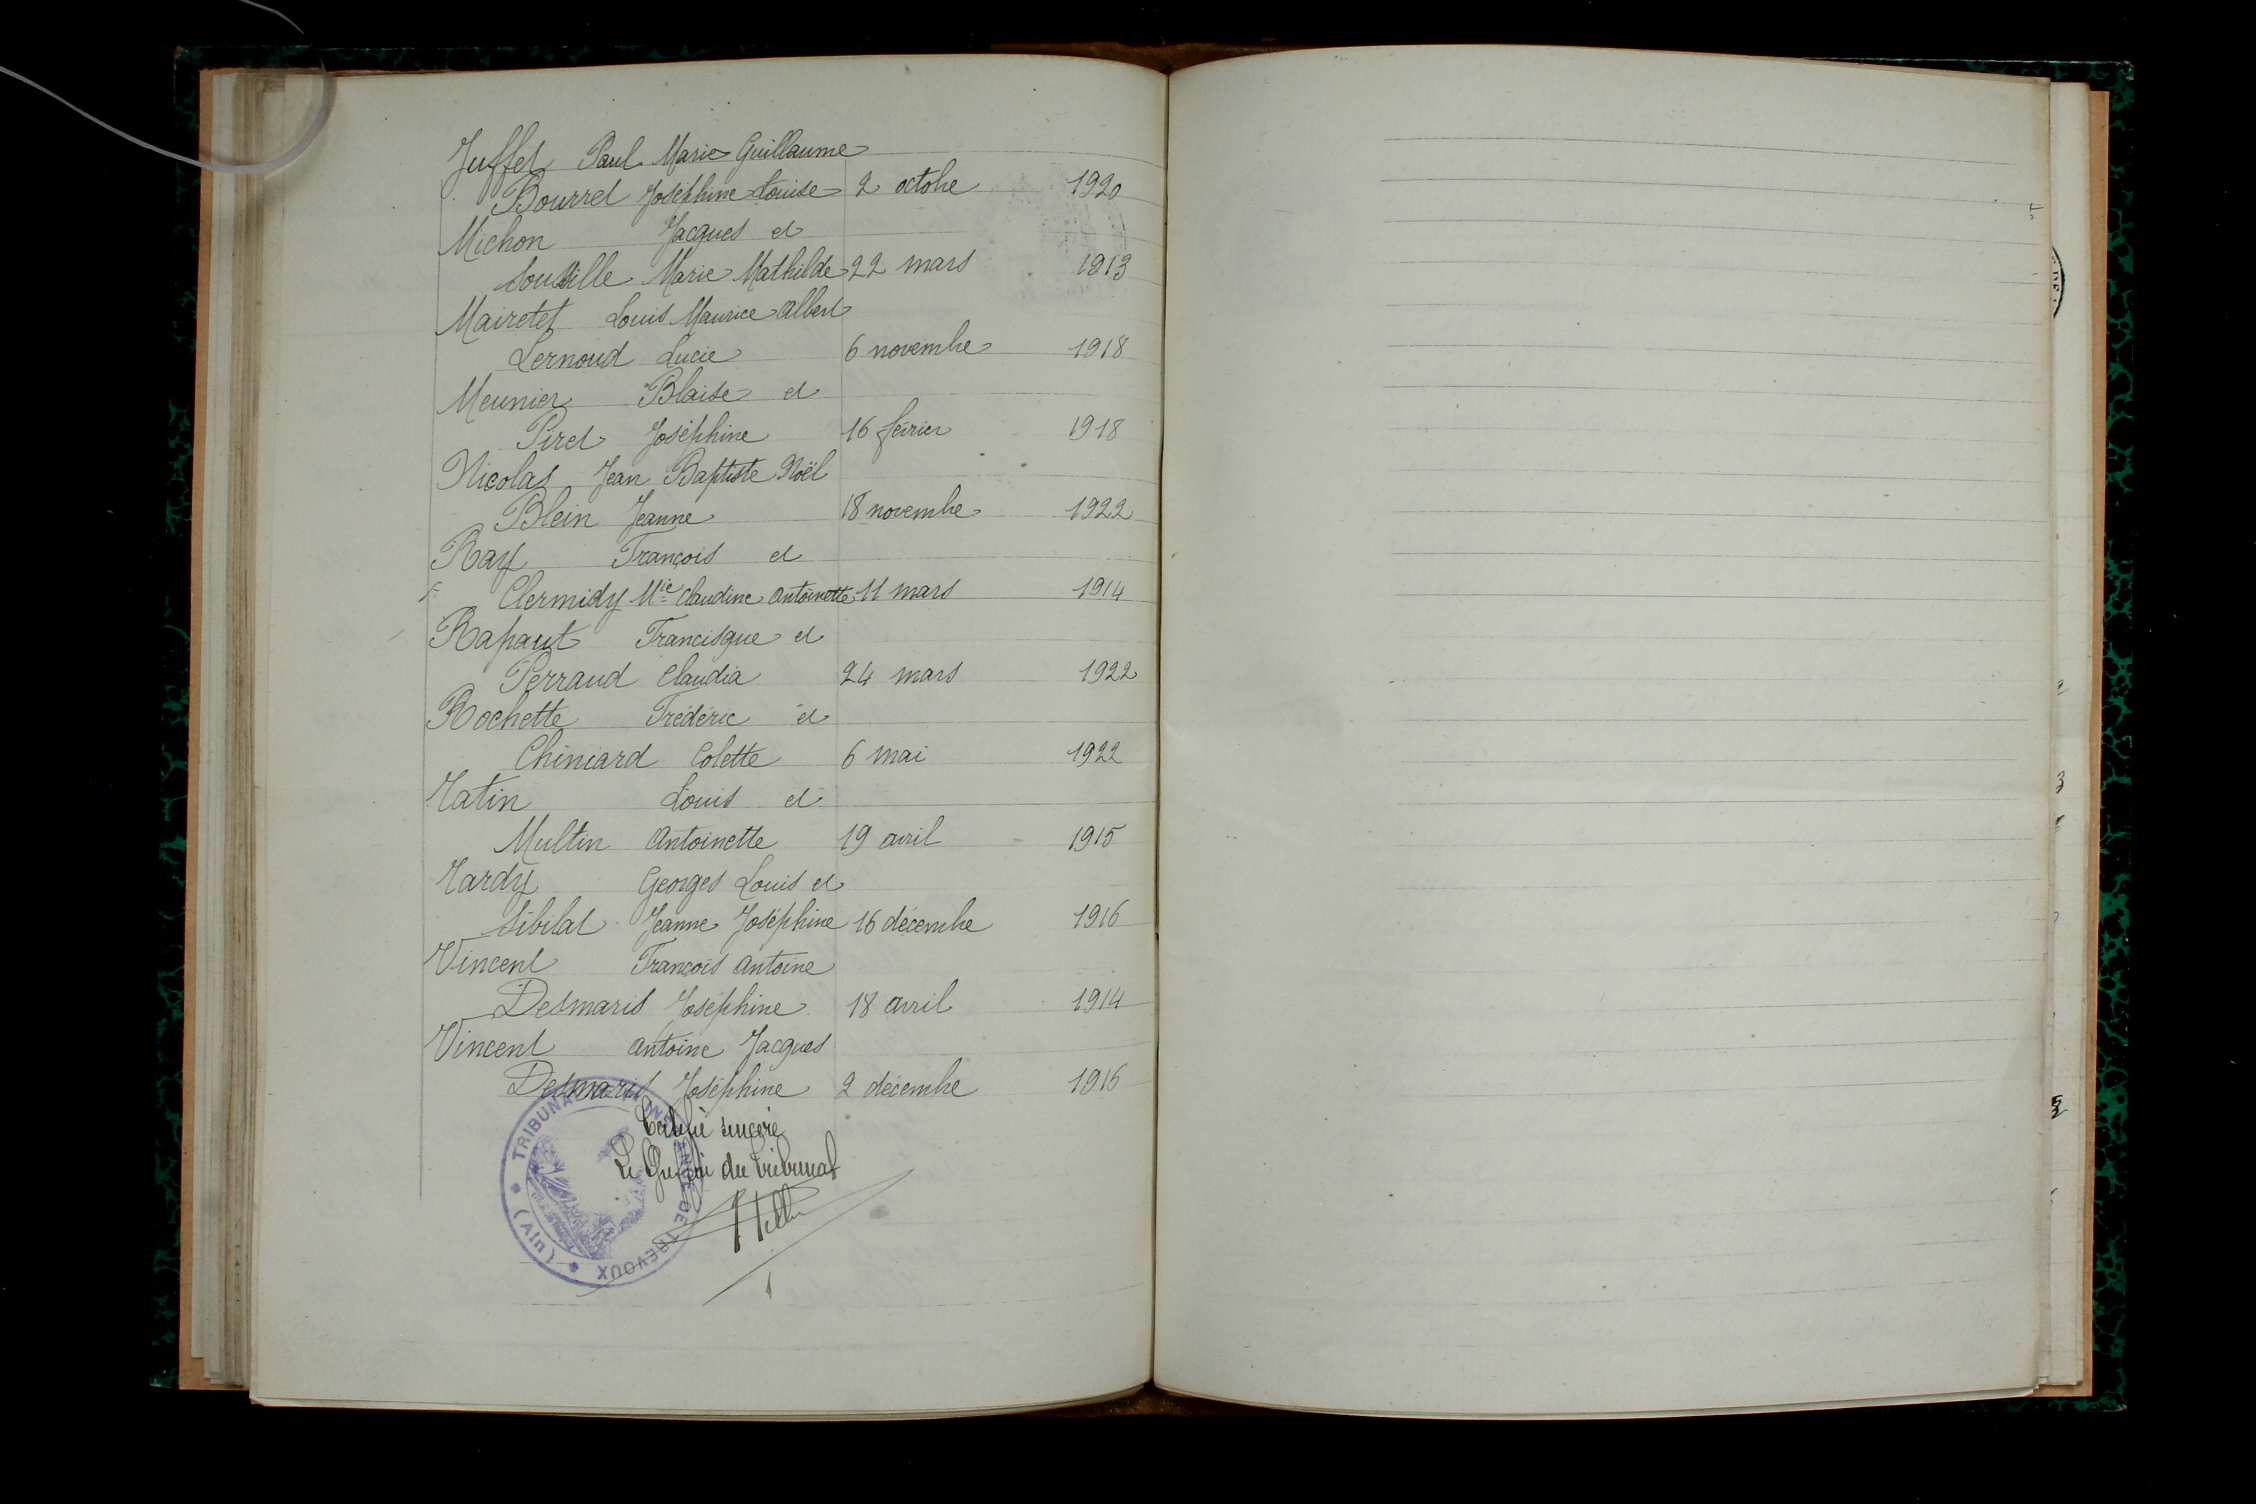 Juffet Paul Marie Guillaume
Bourret Joséphine Louise 2 octobre 1920
Michon Jacques et
Souville Marie Mathilde 22 mars 1913
Mairetet Louis Maurice Albert
Lernoud Lucie 6 novembre 1918
Meunier Blaise et
Piret Joséphine 16 février 1918
Nicolas Jean Baptiste Noël
Blein Jeanne 18 novembre 1922
Ray François et
Clermidy Mie Claudine Antoinette 11 mars 1914
Rapaut Francisque et
Perraud Claudia 24 mars 1922
Rochette Frédéric et
Chiniard Colette 6 mai 1922
Tatin Louis et
Multin Antoinette 19 avril 1915
Tardy Georges Louis et
Sibilat Jeanne Joséphine 16 décembre 1916
Vincent François Antoine
Desmaris Joséphine 18 avril 1914
Vincent Antoine Jacques
Desmaris Joséphine 2 décembre 1916
Certifié sincère
Le Greffier du tribunal
TRIBUNAL DE TREVOUX
(Ain)